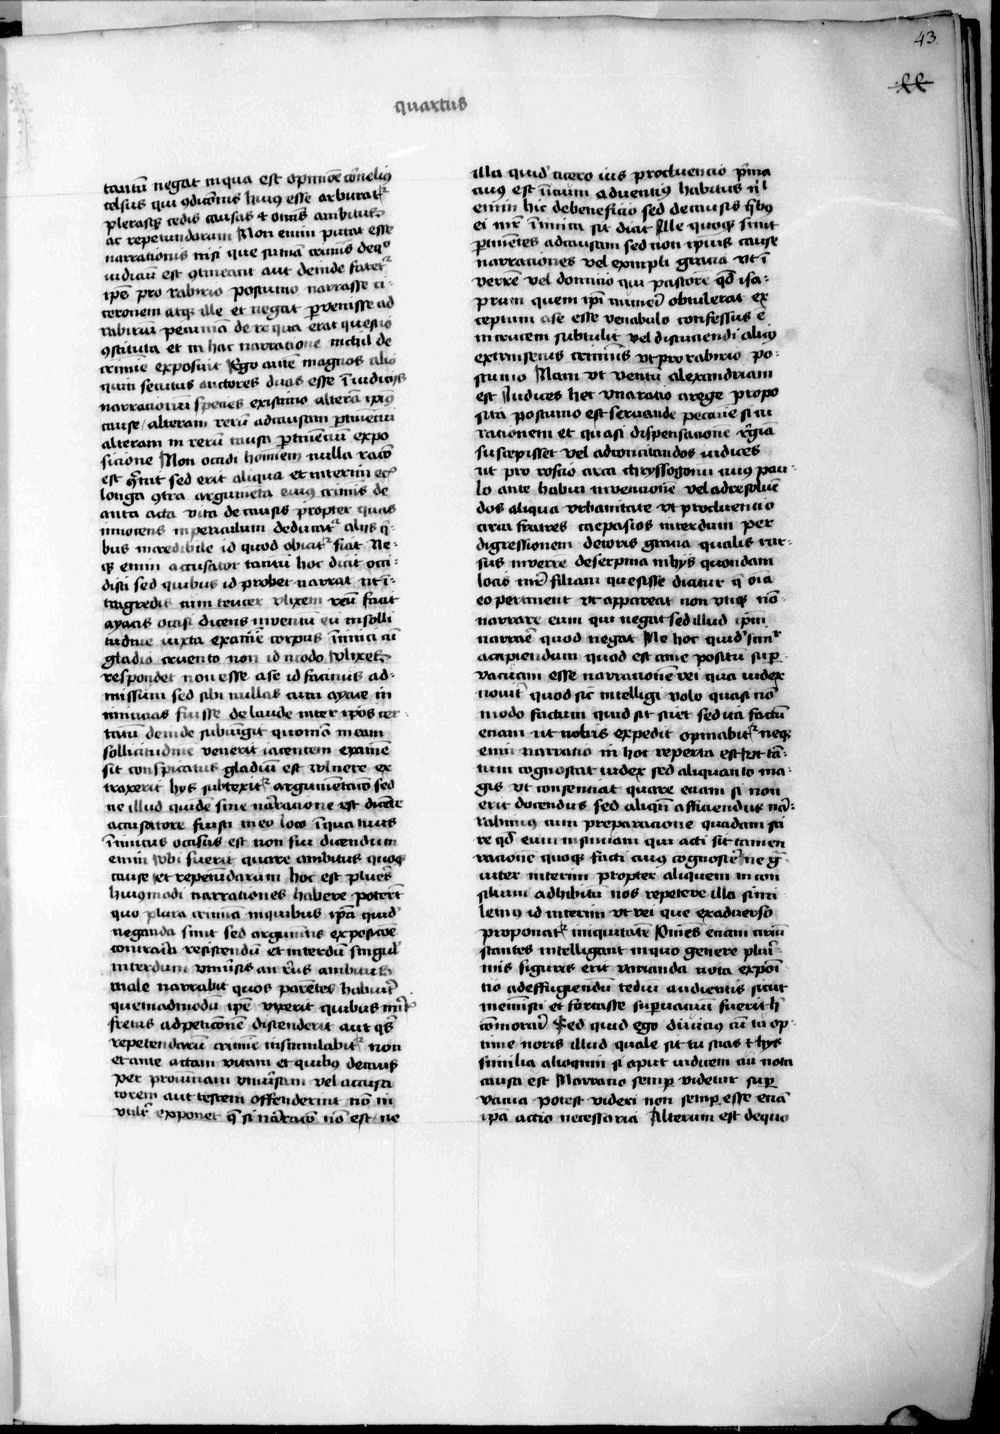 43
quartus
tantū negat in qua est opinione cōnelij
celsus qui ꝯdiciōnis huius esse arbitratᷣ
plerasqꝫ cedis causas ⁊ om̄is ambitus
ac repetundarum Non enim putat esse
narrationis nisi que sūmā crimīs de qͦ
iudiciū est ꝯtineant aut deinde fatetᷣ
ip̄e pro rabirio postumo narrasse ci-
ceronem atqꝫ ille et negat ꝑvenisse ad
rabiriū pecuniā de re qua erat questio
ꝯstituta et in hac narratione nichil de
crimīe exposuit Ego autē magnos alio
quin secutus auctores duas esse ī iudicijs
narrationū species existimo alterā ipius
cause / alteram rerū ad causam ꝑtinētiū
alteram in rerū cause ꝑtinentiū expo
sicione Non occidi hominem nulla racō
est sed erit aliqua et interim eciā
longa ꝯtra argumēta eius crimīs de
ante acta vita de causis propter quas
innocens in periculum deducatᷣ alijs qui-
bus incredibile id quod obicitᷣ fiat Ne-
qꝫ enim accusator tantū hoc dicit occi-
disti sed quibus id probet narrat ut ī
tragedijs cum teucer vlixem reū facit
ayacis occisi dicens inventū eū in solli
tudine iuxta examīe corpus inimici cū
gladio cruento non id modo vlixes
respondet non esse a se id facinus ad-
missum sed sibi nullas cum ayace in
imicicias fuisse de laude inter ip̄os cer-
tatū deinde subiungit quomā in eam
sollicitudine venerit iacentem examīe
sit conspicatus gladiū est vulnere ex
traxerit hys subtexitᷣ argumētacō sed
ne illud quidē sine narracione est dicēte
accusatore fuisti in eo loco ī qua tuus
inimicus occisus est non fui dicendum
enim vbi fuerit quare ambitus quoqꝫ
cause et repetundarum hoc est plures
huiusmodi narrationes habere poterūt
quo plura crimīa in quibus ip̄a quidē
neganda sunt sed argumētis expositōe
contraria resistendū et interdū singulis
interdum vniuersis an reus ambitus
male narrabit quos parētes habuerit
quemadmodū ip̄e vixerit quibus mītis
fretus ad peticionē discenderit aut qͥ
repetendarū crimīe insimulabitᷣ non
et ante actam vitam et quibus de causis
per prouinciam vniuersam vel accusa
torem aut testem offenderint nō in
vtilitᷣ exponet q̄ si narracō nō est / ne
illa quidē cicero ius procluencio prima
cuius est inicium a cluentius habitus nil
enim hic de beneficio sed de causis quibꝫ
ei mr̄ inimica sit dicit Ille quoqꝫ sunt
ꝑtinētes ad causam sed non ipius cause
narrationes vel exempli gracia vt ī
verrē vel domicio qui pastorē qd̄ isa-
prum quem ip̄i muneri obtulerat ex
ceptum a se esse venabulo confessus ē
in crucem subtulit vel discuciendi alicuius
extrinsecus criminis vt pro rabirio po-
stumo Nam vt ventū alexandriam
est Iudices hec vna racio a rege propo
sita postumo est seruande pecunie si cu
rationem et quasi dispensacionē regiā
suscepisset vel ad concitandos iudices
ut pro roscio circa chryssogonū cuius pau-
lo ante habui invencionē vel ad resoluē
dos aliqua vrbanitate vt procluencio
circa fratres caepasios interdum per
digressionem decoris gracia qualis rur-
sus in verrē de serpina in hys quondam
locis mr̄ filiam quesisse dicitur q̄ oīa
eo pertinent vt appareat non vtiqꝫ nō
narrare eum qui negat sed illud ip̄m
narrare quod negat Ne hoc quidē simpᷣr
accipiendum quod est a me positū suꝑ
vacuam esse narrationē rei qua iudex
nouit quod sic intelligi volo quasi nō
modo factum quid sit sciet sed ita factū
eciam ut nobis expedit opinabitᷣ neqꝫ
enim narratio in hoc reperta est vt tā-
tum cognoscat iudex sed aliquanto ma-
gis vt consenciat quare eciam si non
erit docendus sed aliquo afficiendus nar-
rabimus cum preparacione quadam sci
re qd̄ eum in sumam qui acti sit tamen
racionē quoqꝫ facti cuiusqꝫ cognoscere ne gͣ
uiter interim propter aliquem in con
silium adhibitū nos repetere illa simi
lemus id interim vt rei que ex aduerso
proponatᷣ iniquitatē Omnes eciam circū
stantes intelligant in quo genere pluri
mis figuris erit varianda nota expōi
tio ad effugiendū tediū audientis sicut
meministi et fortasse suꝑuacuū fuerit hic
cōmorari Sed quid ego diucius cū tu op-
time noris illud quale sit tu scias ⁊ hys
similia alioqui si aput iudicem cui nota
causa est Narratio semꝑ videtur suꝑ
vacua potest videri non semꝑ esse eciā
ip̄a actio necessaria Alterum est de quo